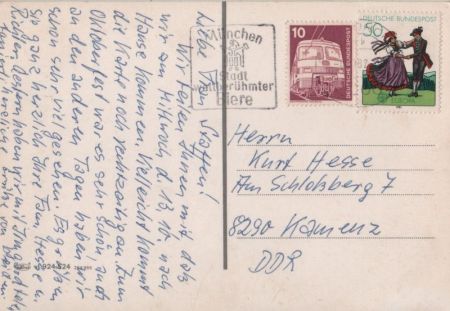 Liebe Frau Steffen!
Wir teilen Ihnen mit, daß
wir am Mittwoch d. 13. 10. nach
Hause kommen. Vielleicht kommt
die Karte noch rechtzeitig an. Zum
Oktoberfest war es sehr schön, auch
an den anderen Tagen haben wir
schon sehr viel gesehen. Es grüßen
Sie ganz herzlich Ihre Fam. Hesse u.
Gestern haben wir mit
herzlich
München
Stadt
weltberühmter
Biere
10
DEUTSCHE BUNDESPOST
DEUTSCHE BUNDESPOST
50
EUROPA
Herrn
Kurt Hesse
Am Schloßberg 7
8290 Kamenz
DDR
924 524